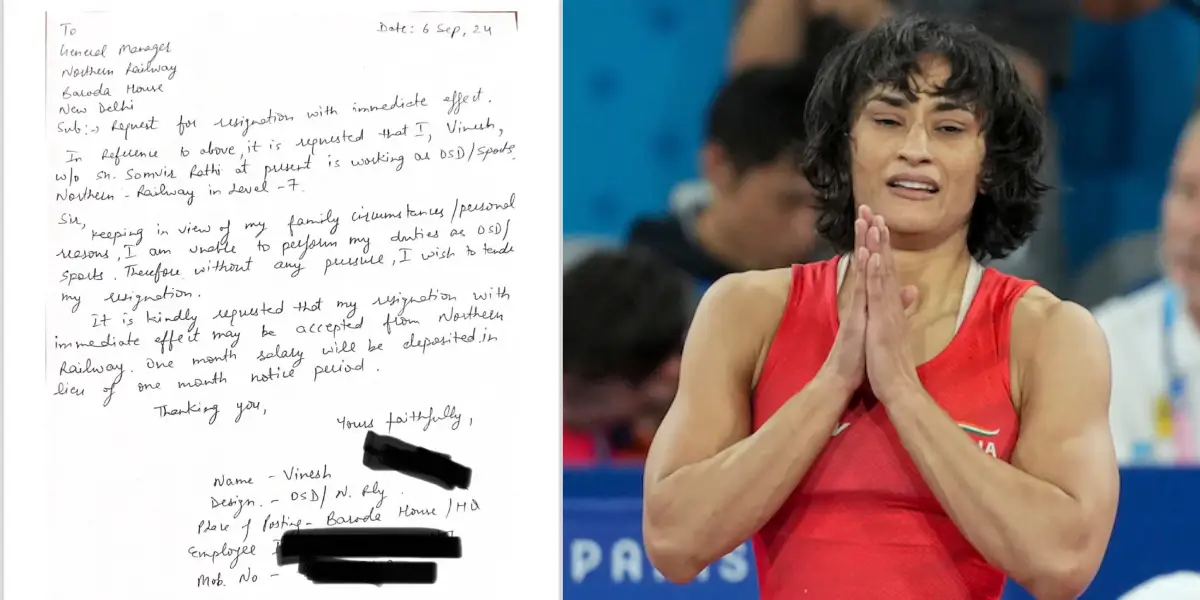 To
Date: 6 Sep, 24
General Manager
Northern Railway
Baroda House
New Delhi
Sub:-> Request for resignation with immediate effect.
In Reference to above, it is requested that I, Vinesh,
w/o Sh. Somvir Rathi at present is working as OSD/Sports
Northern - Railway in Level -7.
Sir,
Keeping in view of my family circumstances/personal
reasons, I am unable to perform my duties as OSD/
Sports. Therefore without any pressure, I wish to tende
my resignation.
It is kindly requested that my resignation with
immediate effect may be accepted from Northern
Railway. One month salary will be deposited in
lieu of one month notice period.
Thanking you,
Yours faithfully,
Name - Vinesh
Design. - OSD/N. Rly.
Place of Posting - Baroda House/HQ
Employee
Mob. No -
IA
PARIS